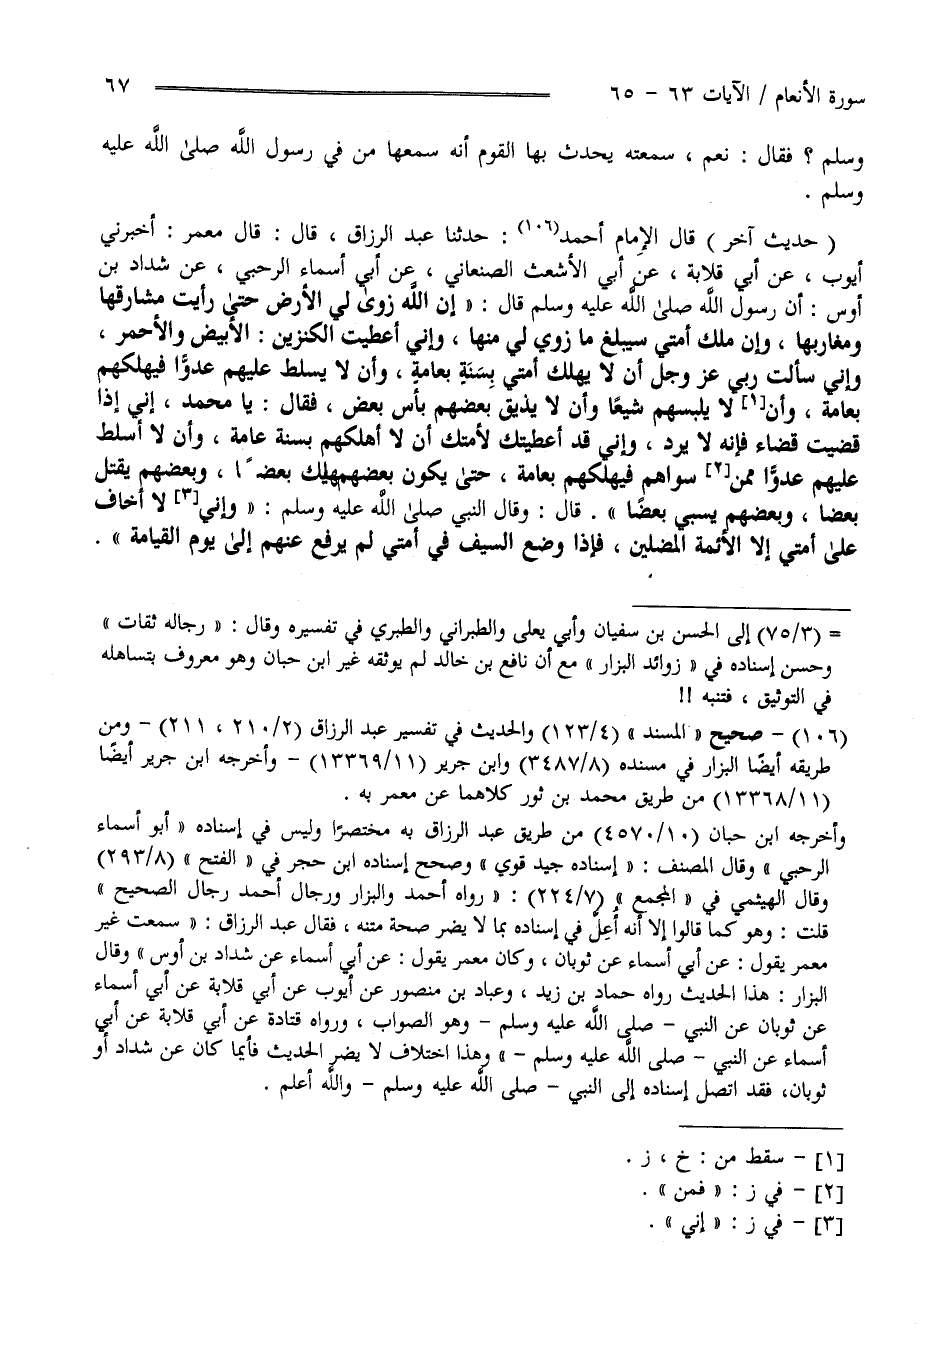 سورة الأنعام / الآيات ٦٣ - ٦٥ ٦٧
وسلم ؟ فقال : نعم ، سمعته يحدث بها القوم أنه سمعها من في رسول اللَّه صلىٰ اللَّه عليه
وسلم .
( حديث آخر ) قال الإمام أحمد(١٠٦) : حدثنا عبد الرزاق ، قال : قال معمر : أخبرني
أيوب ، عن أبي قلابة ، عن أبي الأشعث الصنعاني ، عن أبي أسماء الرحبي ، عن شداد بن
أوس : أن رسول اللَّه صلىٰ اللَّه عليه وسلم قال : « إن اللَّه زوىٰ لي الأرض حتىٰ رأيت مشارقها
ومغاربها ، وإن ملك أمتي سيبلغ ما زوي لي منها ، وإني أعطيت الكنزين : الأبيض والأحمر ،
وإني سألت ربي عز وجل أن لا يهلك أمتي بِسَنَةٍ بعامة ، وأن لا يسلط عليهم عدوًّا فيهلكهم
بعامة ، وأن[١] لا يلبسهم شيعًا وأن لا يذيق بعضهم بأس بعض ، فقال : يا محمد ، إني إذا
قضيت قضاء فإنه لا يرد ، وإني قد أعطيتك لأمتك أن لا أهلكهم بسنة عامة ، وأن لا أسلط
عليهم عدوًّا ممن[٢] سواهم فيهلكهم بعامة ، حتىٰ يكون بعضهم يهلك بعضًا ، وبعضهم يقتل
بعضا ، وبعضهم يسبي بعضًا » . قال : وقال النبي صلىٰ اللَّه عليه وسلم : « وإني[٣] لا أخاف
علىٰ أمتي إلا الأئمة المضلين ، فإذا وضع السيف في أمتي لم يرفع عنهم إلىٰ يوم القيامة » .
= (٧٥/٣) إلى الحسن بن سفيان وأبي يعلى والطبراني والطبري في تفسيره وقال : « رجاله ثقات »
وحسن إسناده في « زوائد البزار » مع أن نافع بن خالد لم يوثقه غير ابن حبان وهو معروف بتساهله
في التوثيق ، فتنبه !!
(١٠٦) - صحيح « المسند » (١٢٣/٤) والحديث في تفسير عبد الرزاق (٢١٠/٢ ، ٢١١) - ومن
طريقه أيضًا البزار في مسنده (٣٤٨٧/٨) وابن جرير (١٣٣٦٩/١١) - وأخرجه ابن جرير أيضًا
(١٣٣٦٨/١١) من طريق محمد بن ثور كلاهما عن معمر به .
وأخرجه ابن حبان (٤٥٧٠/١٠) من طريق عبد الرزاق به مختصرًا وليس في إسناده « أبو أسماء
الرحبي » وقال المصنف : « إسناده جيد قوي » وصحح إسناده ابن حجر في « الفتح » (٢٩٣/٨)
وقال الهيثمي في « المجمع » (٢٢٤/٧) : « رواه أحمد والبزار ورجال أحمد رجال الصحيح »
قلت : وهو كما قالوا إلا أنه أُعِلَّ في إسناده بما لا يضر صحة متنه ، فقال عبد الرزاق : « سمعت غير
معمر يقول : عن أبي أسماء عن ثوبان ، وكان معمر يقول : عن أبي أسماء عن شداد بن أوس » وقال
البزار : هذا الحديث رواه حماد بن زيد ، وعباد بن منصور عن أيوب عن أبي قلابة عن أبي أسماء
عن ثوبان عن النبي - صلى اللَّه عليه وسلم - وهو الصواب ، ورواه قتادة عن أبي قلابة عن أبي
أسماء عن النبي - صلى اللَّه عليه وسلم - » وهذا اختلاف لا يضر الحديث فأيما كان عن شداد أو
ثوبان، فقد اتصل إسناده إلى النبي - صلى اللَّه عليه وسلم - واللَّه أعلم .
[١] - سقط من : خ ، ز .
[٢] - في ز : « فمن » .
[٣] - في ز : « إني » .